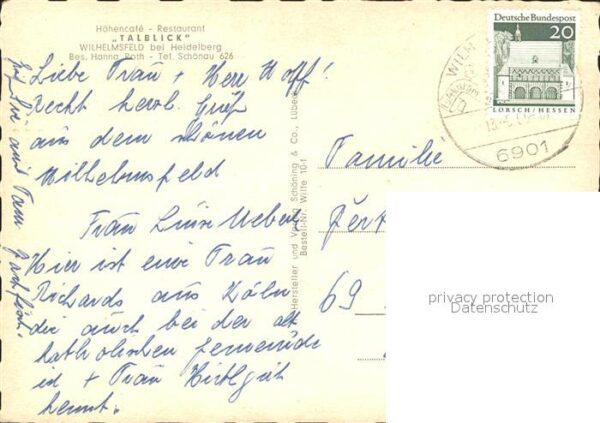 Höhencafé - Restaurant
„TALBLICK“
WILHELMSFELD bei Heidelberg
Bes. Hanna Roth - Tel. Schönau 626
Liebe Frau + Herr Hoff!
Recht herzl. Grüß
aus dem schönen
Wilhelmsfeld
Frau Luise Weber
Hier ist eine Frau
Richards aus Köln
die auch bei der alt
katholischen Gemeinde
ist + Frau
kennt.
und Fam.
Hersteller und Verlag Schöning & Co., Lübeck
Bestell-Nr. Wilfe 101
Deutsche Bundespost
20
LORSCH/HESSEN
6901
Familie
69
privacy protection
Datenschutz